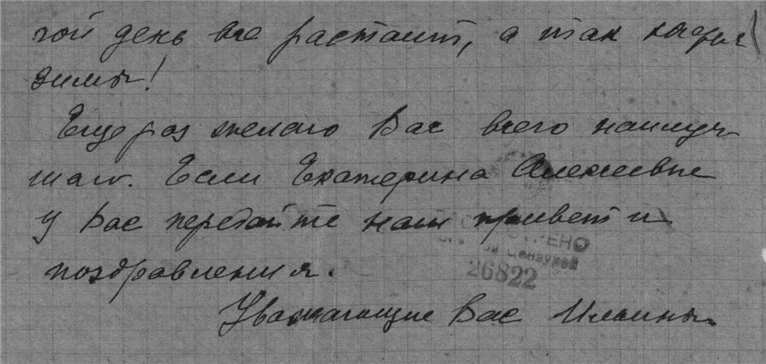 гой день все растает, а так
зимы!
Еще раз желаю Вас всего наилуч
шаго. Если Екатерина Алексеевна
у Вас передайте наш привет и
поздравления.
Уважающие Вас Ильины.
ЕНО
цензурой
26822